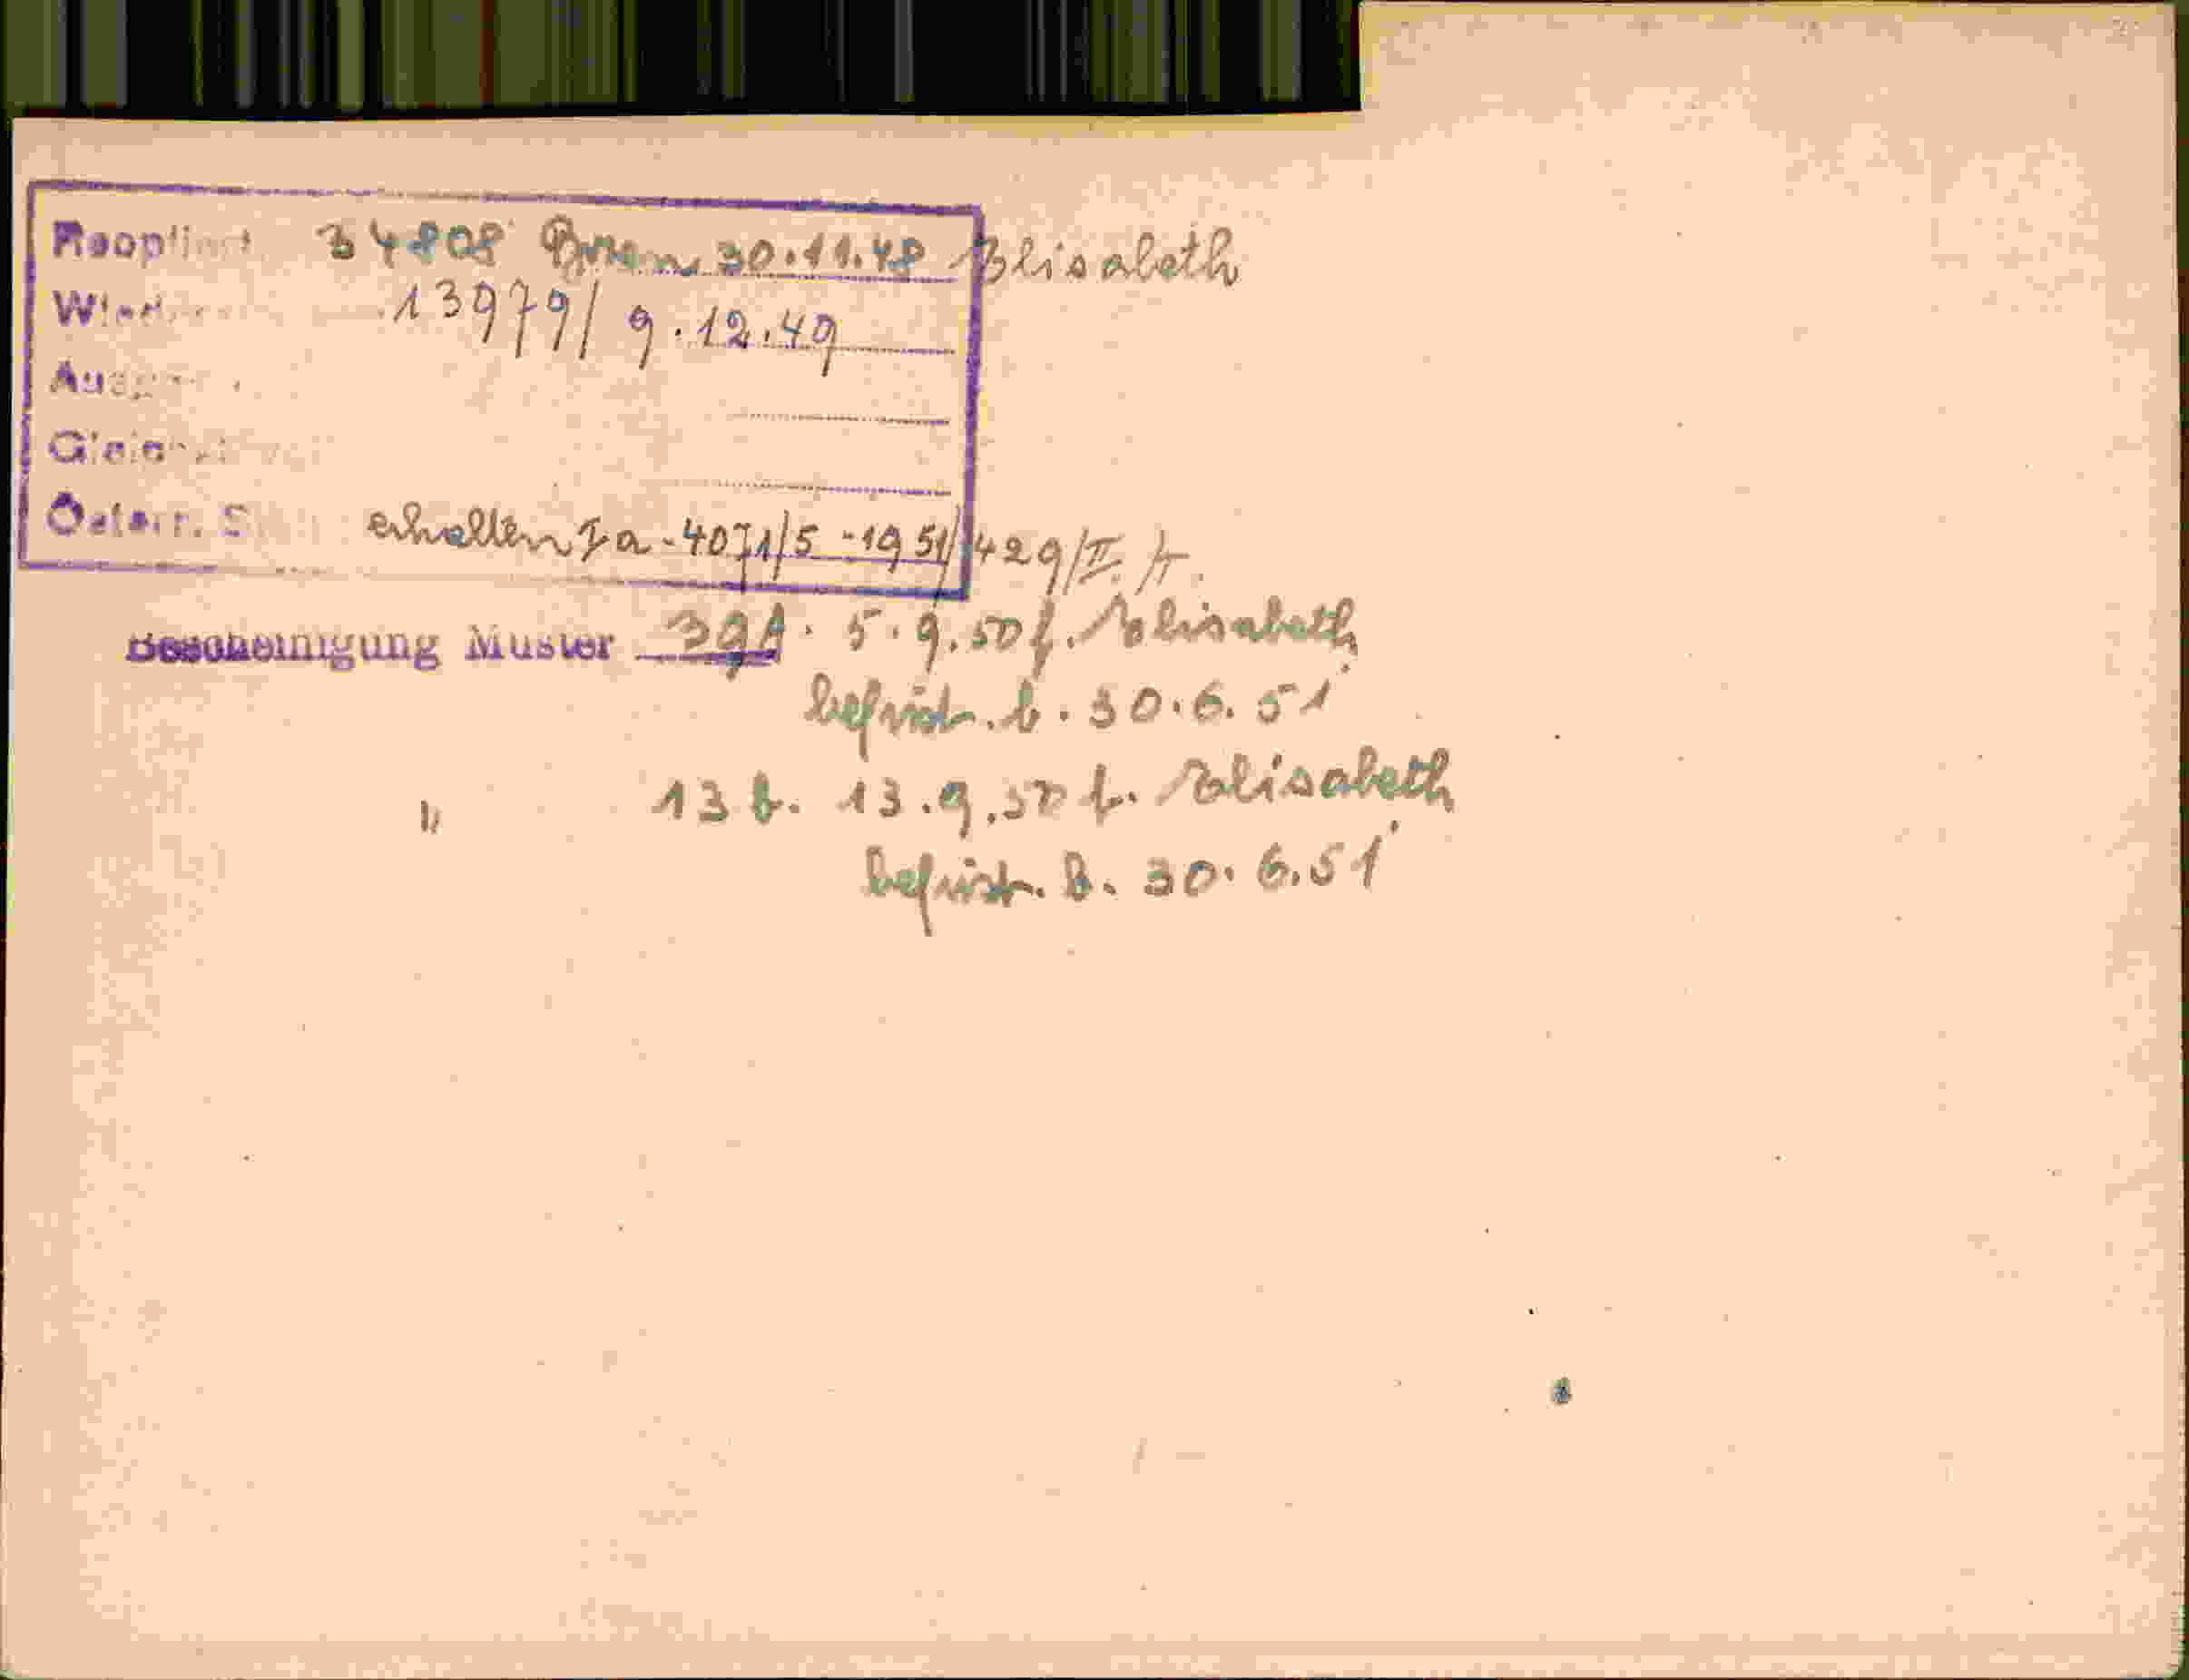 Reoptiert 34808 30.11.48 Elisabeth
13979/ 9.12.49
Österr. S erhalten Ia-4071/5-1951/429/II.
Bescheinigung Muster 39A. 5.9.50 f. Elisabeth
befrist. b. 30.6.51
" 13 b. 13.9.50 f. Elisabeth
befrist. b. 30.6.51